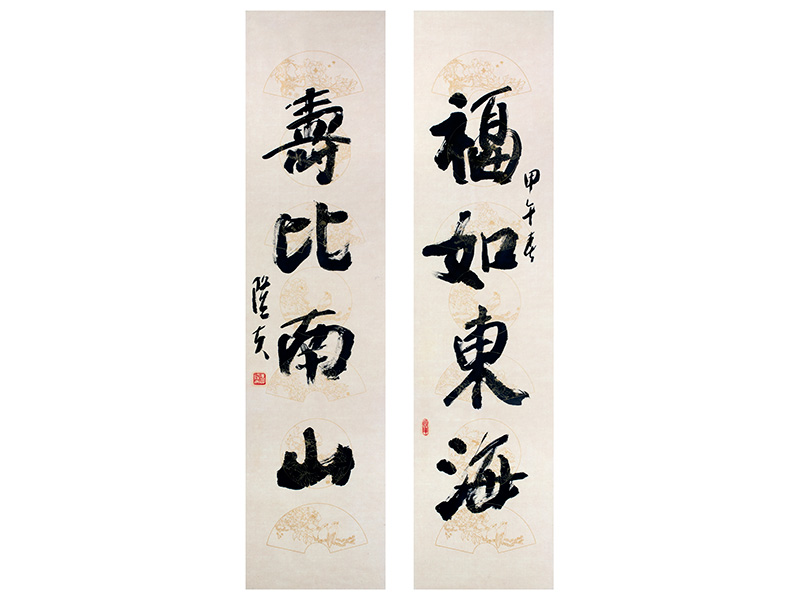 福如東海
甲午春
壽比南山